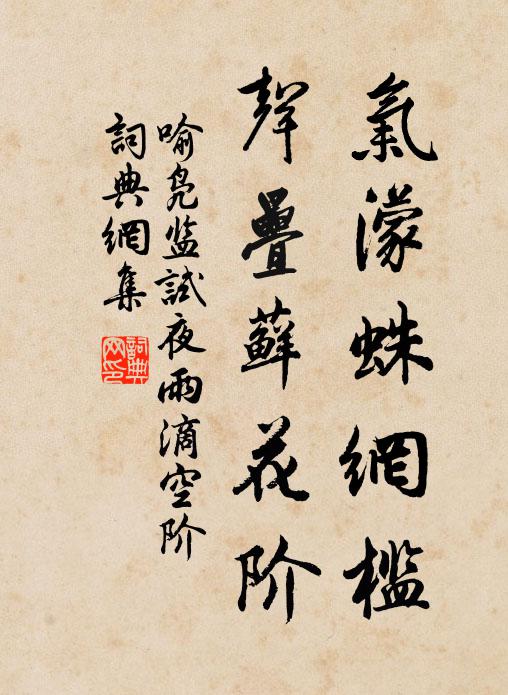 氣濛蛛網檻
聲疊蘚花阶
喻凫监試夜雨滴空阶
詞典網集
詞典
网印